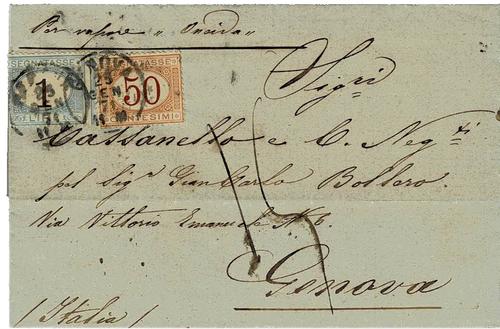 Per vapore "Oneida"
SEGNATASSE
1
LIRE
SEGNATASSE
50
CENTESIMI
GEN
Sigri
Cassanello e C. Neg.ti
pel Sigr GianCarlo Bollero.
Via Vittorio Emanuele N. 6.
15
Genova
(Italia)